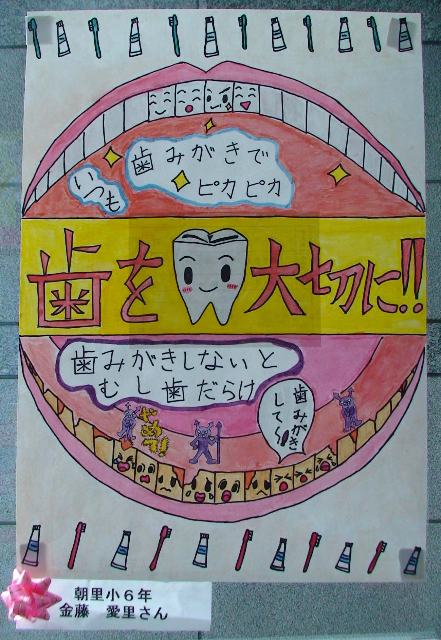 歯みがきで
ピカピカ
いつも
歯を大切に!!
歯みがきしないと
むし歯だらけ
歯みがき
して〜
やめて
朝里小6年
金藤 愛里さん